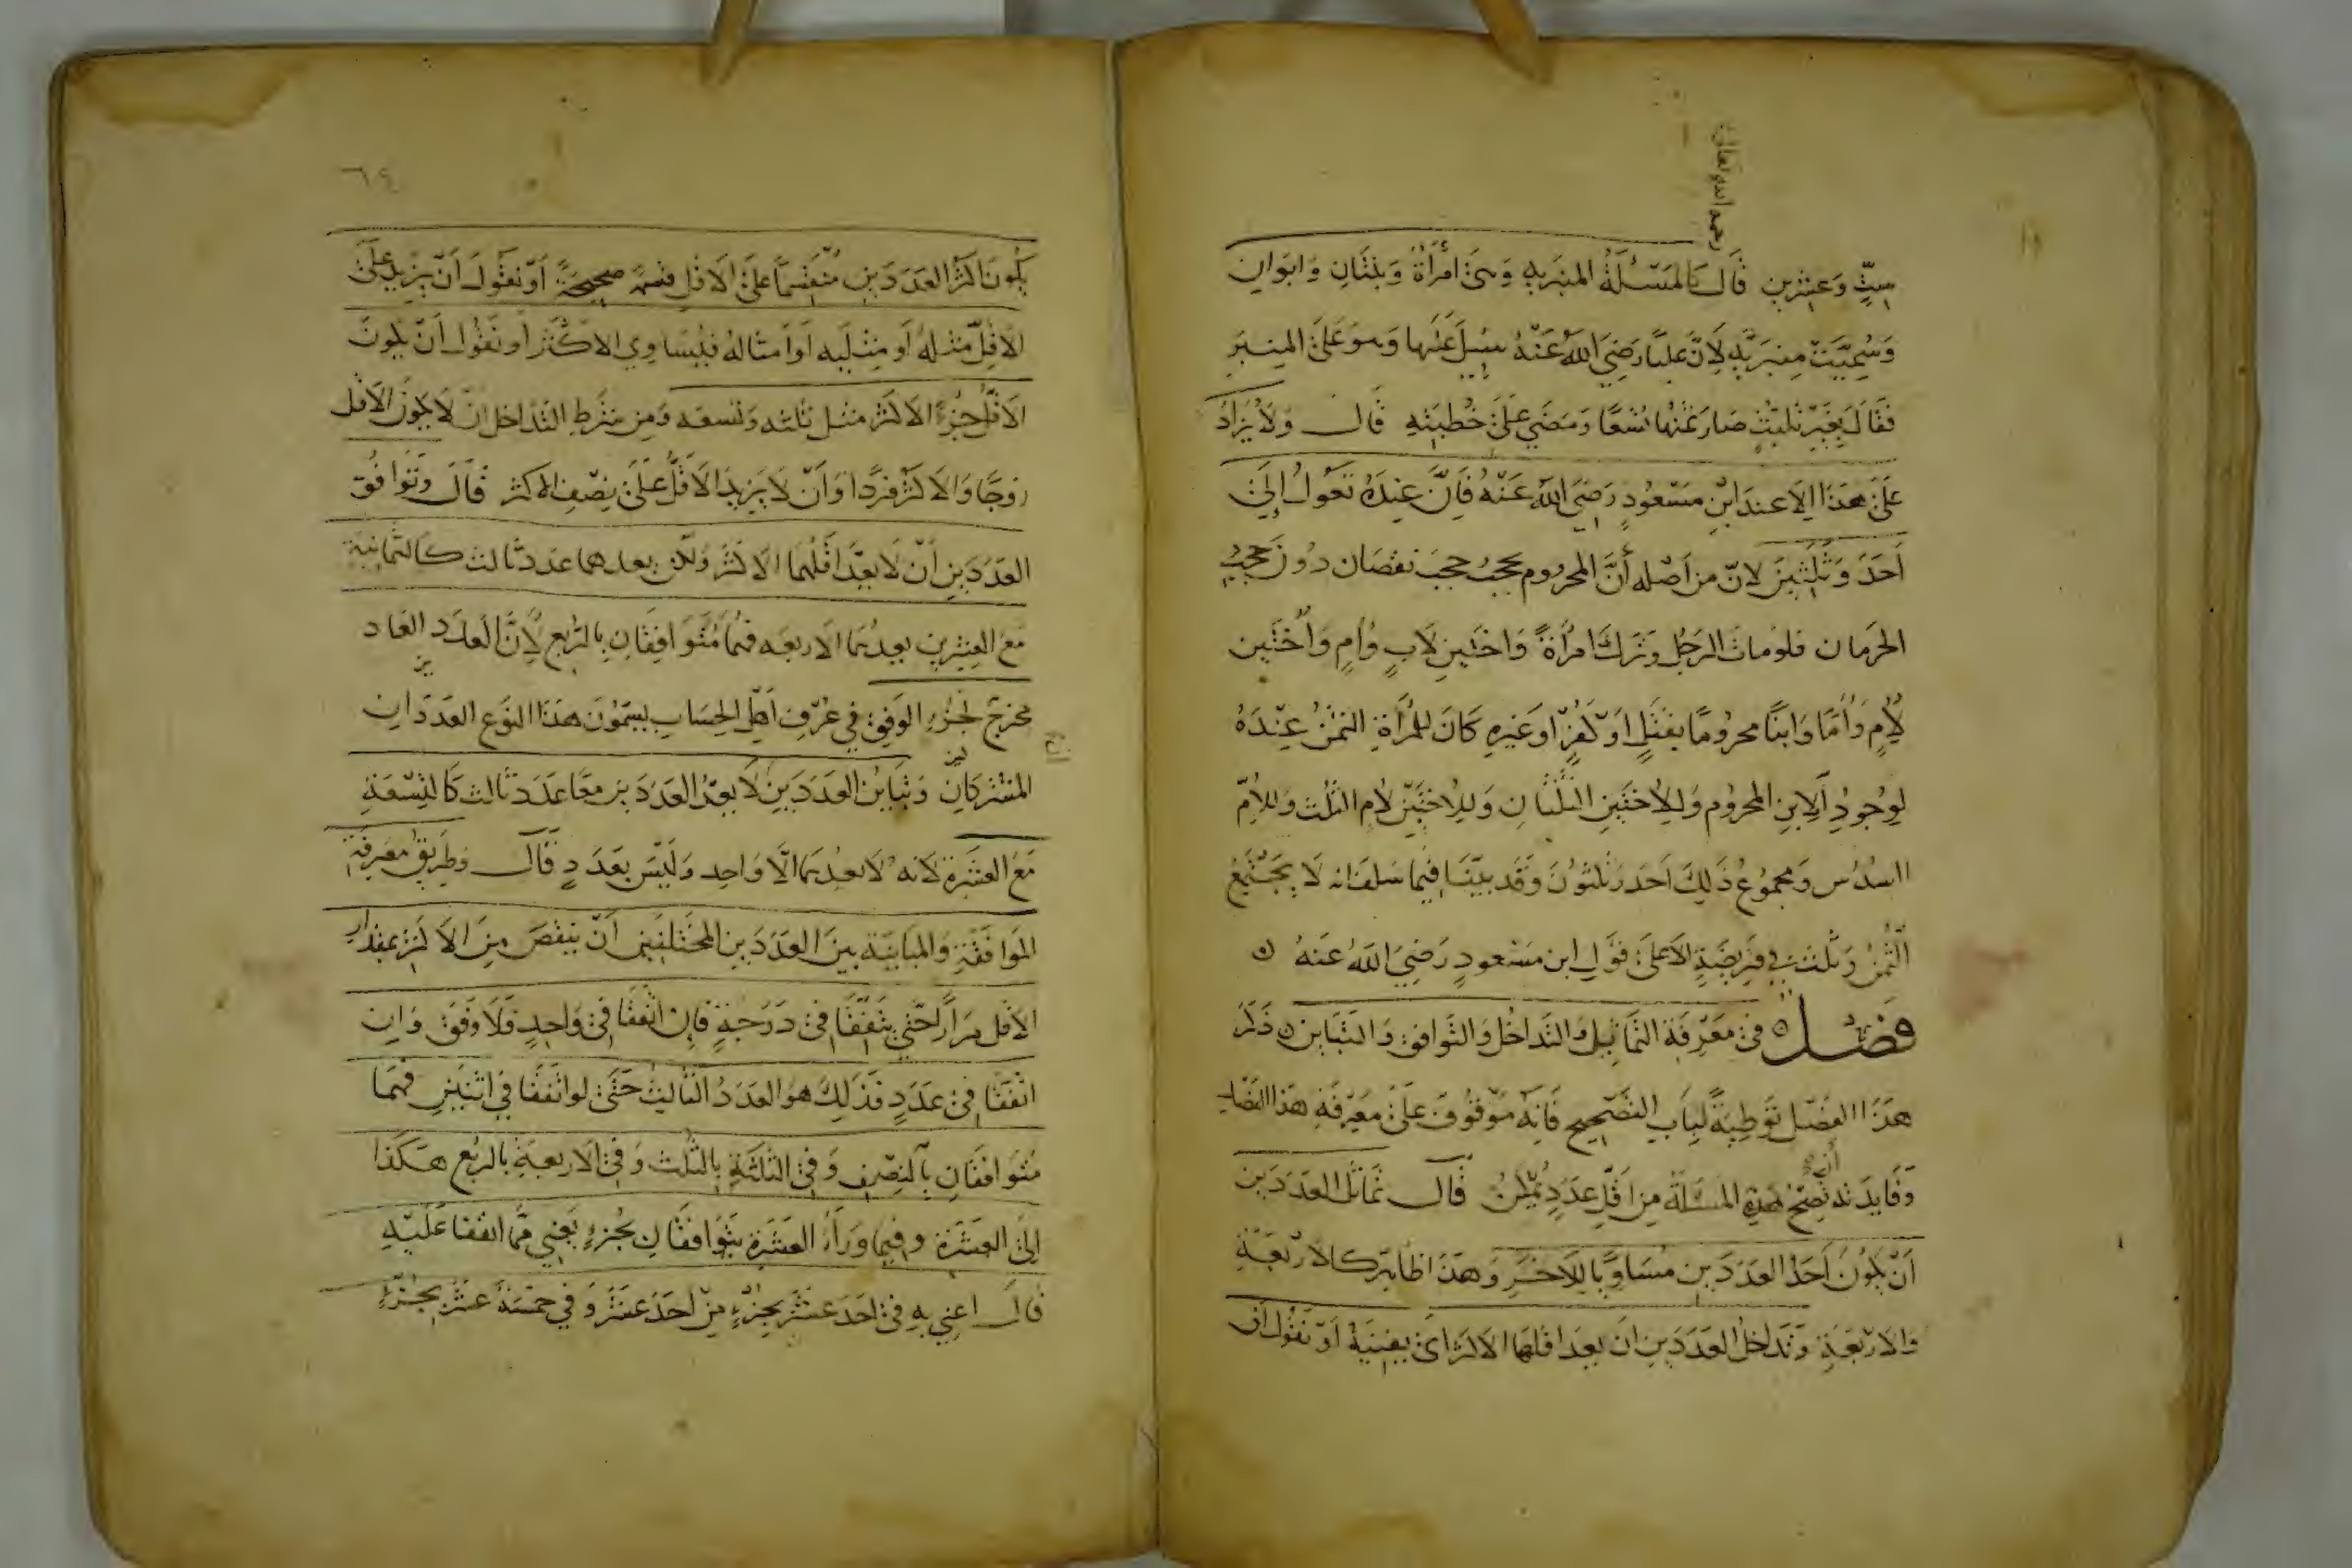 رحمه الله تعالى
ستٍّ وَعشرين قَالَ كالمَسْئلَةُ المنبَريه وَهىَ امرَأةٌ وَبنتَانِ وَابوَانِ
وَسُمِّيَتْ مِنبَريَّه لِاَنّ عليًّا رَضِيَ اللهُ عَنْهُ سُئِلَ عَنْهَا وَهوَ عَلىَ المِنبَرِ
فقَالَ بغَيْرِ تلبّثٍ صَارَ ثمْنُهَا تُسْعًا وَمَضَى عَلىَ خُطبَتِهِ قَالَ وَلاَ يُزَادُ
عَلىَ هذَا اِلاَّ عندَ ابْنِ مَسْعُودٍ رَضِىَ اللهُ عَنْهُ فَاِنَّ عِنْدَهُ تَعُولُ اِلىَ
اَحَدَ وَثَلثِينَ لانّ من اَصْله أنَّ المحرُوم يحجبُ حجبَ نقصَان دُونَ حجْبِ
الحرْمان فلومَاتَ الرجُل وَترَكَ امرْأةً وَاختَينِ لاَبٍ وَاُمٍ وَاُخْتَينِ
لاُِمٍ وَاُمًّا وَابنًا محرُومًا بقَتْلٍ اوْ كفْرٍ اوغَيرِهِ كَانَ لِلمرْأةِ الثمُنُ عِنْدَهُ
لِوُجودِ اَلاِبنِ المحرُومِ وَلِلاُخْتَينِ الثُّلثَانِ وَلِلاُختَينِ لاُِم الثلُث وَللاُمِّ
السدُسُ وَمجمُوعُ ذَلِكَ اَحَدَ وَثلثوُنَ وَقَد بيَّنَّا فيمَا سَلفَ انه لاَ يَجْتَمِعُ
الثّمُنُ وَثلث في فَرِيضَةٍ الاَّ عَلىَ قوْلِ ابن مَسْعودٍ رَضِيَ اللهُ عَنهُ ه
فصْــل ه فى مَعْرفَة التمَاثل وَالتدَاخُل وَالتوَافق وَالتبَاين ه ذكَرَ
هَذَا الفصْل توْطِيَةً لبَابِ التصْحِيح فَانِهُ مَوْقوُفٌ عَلىَ مَعْرِفَةِ هذا الفصْلِ
وَفَايدَته اَن تصِحّ هذه المسئلَة مِن اقَلِّ عَدَدٍ يُمكنُ قَالَ تمَاثلُ العَدَدَين
اَنْ يَكُونَ اَحَدُ العَدَدَين مُسَاويًا لِلاخَرِ وَهذَا ظاهِر كالاَرْبَعَةِ
وَالاَرْبَعَةِ وَتَدَاخلُ العَدَدَينِ اَن يعدَ اقلهَا الاَكثرَ اىْ يفنيَهُ اَوْ نقُولُ اَن
٦٤
يَكُونَ اكثرُ العَدَدَينِ مُنْقَسِمًا عَلىَ الاَقلِّ قسْمَةً صحِيحَةً اَوْ نقُولَ اَنْ يزِيدَ عَلىَ
الاَقلِّ مثلهُ اَو مِثليه اَوْ اَمثالهُ فيُسَاوِي الاكثَر اَو نقُولُ اَنْ يكونَ
الاَقلُّ جُزْءَ الاَكثر مثل ثلثه وتسعه وَمِن شَرْطِ التدَاخل انْ لاَ يكُونَ الاَقل
زوْجًا وَالاَكثرُ فرْدًا وَاَنْ لاَ يَزيدَ الاَقَلُّ عَلىَ نِصْفِ الاكثر قَالَ وَتَوَافُق
العَدَدَينِ اَنْ لاَ يعُدَّ اقَلُهمَا الاَكثرَ وَلكن يعدهما عَدد ثالث كالثمانيَة
مَعَ العِشرِين يعدُهمَا الاَربعَه فهُمَا مُتَوَافِقَانِ بِالرّبُع لاَِنَّ العَدَدَ العَاد
مخرَج لجُزءِ الوَفقِ فى عُرْفِ اَهلِ الحِسَاب يسَمّوُنَ هذَا النوَع العَدَدَان
المشْتركَانِ وَتبَايُن العَدَدَينِ اَن لاَ يعُدَّ العَدَدَين معًا عَدَد ثالث كَالتِسْعَةِ
مَعَ العشَرَةِ لانه لاَ يعُدهمَا الاَّ وَاحد وَليْسَ بعَدَدٍ قَالَ وَطَريقُ مَعْرفَة
المَوَافَقَةِ وَالمبَاينَة بينَ العَدَدَينِ المختَلفَين اَنْ ينقصَ مِنَ الاَكثرِ بمِقْدَارِ
الاَقل مِرَارًا حَتّى يَتّفِقَا فى دَرَجَةٍ فَاِن اتفقَا فى وَاحدٍ فلاَ وَفقَ وَاِن
اتفَقَا فى عَدَدٍ فَذَلِكَ هوَ العَدَدُ الثالثُ حَتّى لو اتفَقَا فى اثنَيْنِ فهُمَا
مُتوَافقَانِ بالنِصْفِ وَفى الثلَثَةِ بالثلُث وَفى الاَربَعَةِ بالربُع هكَذَا
اِلىَ العَشَرَة وفيمَا وَرَاءَ العَشَرَةِ يتوَافقَانِ بجُزءٍ يَعْنِي ممّا اتفقا عَلَيْهِ
قالَ اعنِي بهِ فى احَدَ عشَرَ بجُزءٍ مِنْ احَدَ عشَرَ وَفي خمْسَةَ عشَرَ بجُزْءٍ